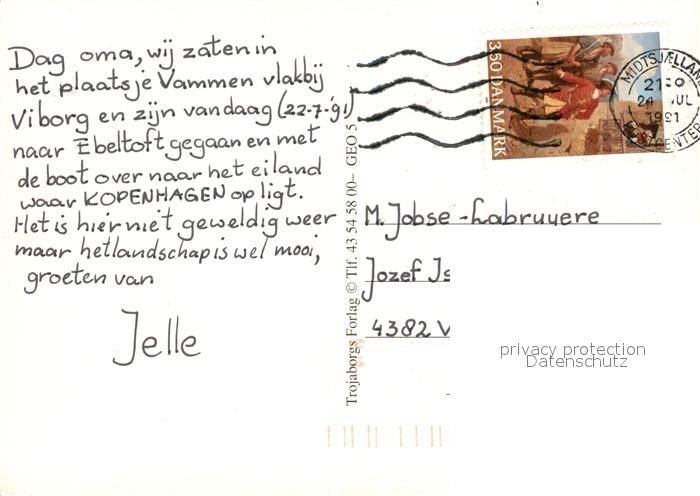 Dag oma, wij zaten in
het plaatsje Vammen vlakbij
Viborg en zijn vandaag (22-7-'91)
naar Ebeltoft gegaan en met
de boot over naar het eiland
waar KOPENHAGEN op ligt.
Het is hier niet geweldig weer
maar het landschap is wel mooi,
groeten van
Jelle
Trojaborgs Forlag © Tlf. 43 54 58 00 – GEO 5
350 DANMARK
MIDTSJÆLLAN
24 JUL
1991
M. Jobse - Labruyere
Jozef Is
4382 V
privacy protection
Datenschutz